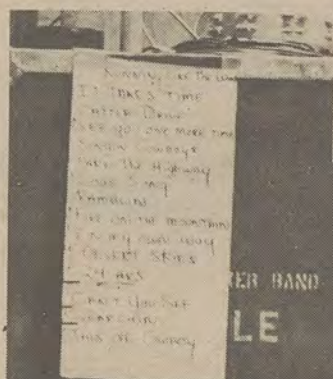 RUNNIN' LIKE THE WIND
IT TAKES TIME
AFTER DARK
SEE YOU ONE MORE TIME
COWBOYS
TAKE THE HIGHWAY
RAMBLIN
FIRE ON THE MOUNTAIN
IN MY OWN WAY
DESERT SKIES
24 HRS
CAN'T YOU SEE
SEARCHIN
THIS OL COWBOY
KER BAND
LE